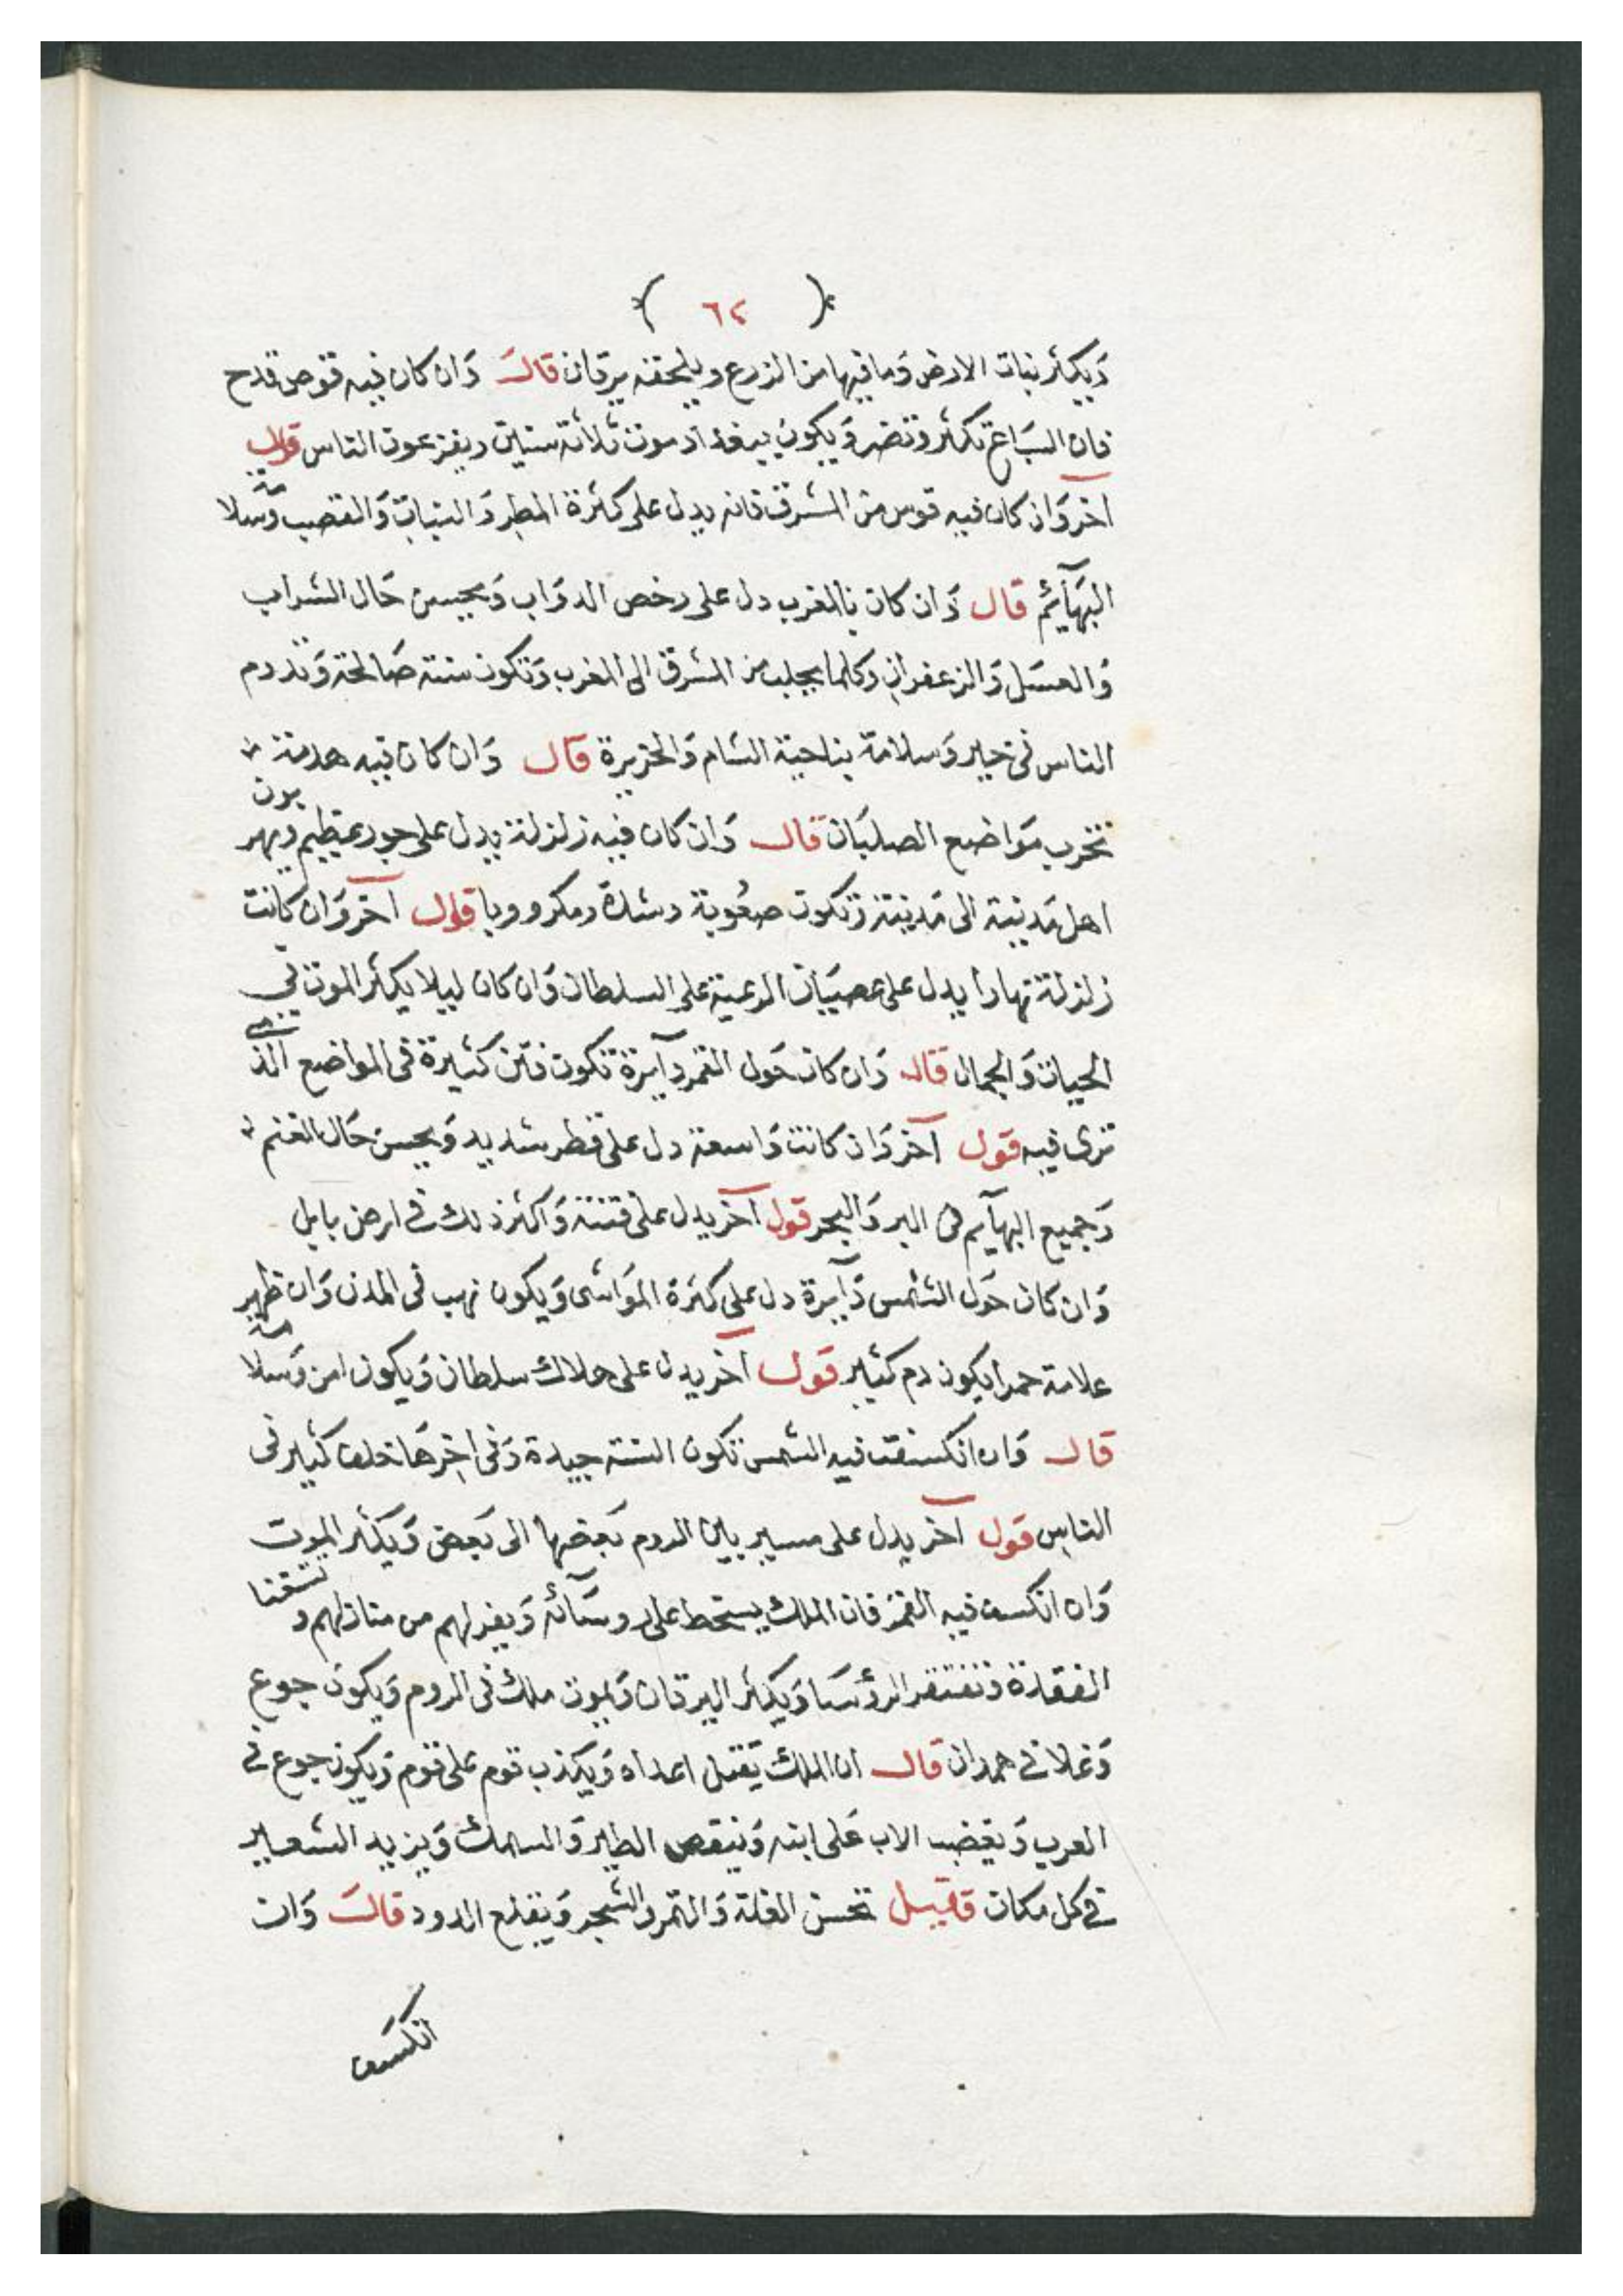 ( ٦٢ )
وَيكثر نبات الارض وَما فيها من الزرع ويلحقه يرقان قالَ وَان كان فيه قوص قدح
فان السبَاع تكثر وتضر وَيكون ببغداد موت ثلاثة سنين ويفزعون الناس قول
اخر وَان كان فيه قوس من المشرق فانه يدل على كثرة المطر وَالنبات وَالقصب وَسلامة
البهَآئم قال وَان كان بالمغرب دل على رخص الدوَاب وَيحسن حَال الشراب
وَالعسَل وَالزعفران وكلما يجلب من المشرق الى المغرب وَتكون سنته صَالحة وَتدوم
الناس فى خير وَسلامة بناحية الشام وَالجزيرة قال وَان كان فيه هدمة
تخرب موَاضع الصلبَان قال وَان كان فيه زلزلة يدل على جور عظيم ويهربون
اهل مَدينة الى مَدينة وَتكون صعُوبة وشدة ومكر ووبا قول اخر وَان كانت
زلزلة نهارا يدل على عصيَان الرعية على السلطان وَان كان ليلا يكثر الموت في
الحيات وَالجمال قال وَان كان حَول القمر دآيرة تكون فتن كثيرة فى المواضع الذى
ترى فيه قول آخر وَان كانت وَاسعة دل على قطر شديد وَيحسن حَال الغنم
وَجميع البهآيم فى البر وَالبحر قول اخر يدل على فتنة وَاكثر ذلك في ارض بابل
وَان كان حَول الشمس دَآيرة دل على كثرة الموَاشى وَيكون نهب فى المدن وَان ظهر
علامة حمرا يكون دم كثير قول آخر يدل على هلاك سلطان وَيكون امن وَسلامة
قال وَان انكسفت فيه الشمس تكون السنة جيدة وَفى اخرهَا خلف كثير فى
الناس قول اخر يدل على مسير بين الروم بَعضها الى بَعض وَيكثر الموت
وَان انكسف فيه القمر فان الملك يسخط على روسَآئه وَيعزلهم من منازلهم و تستغنا
الفقارة وتفتقر الرؤسَا وَيكثر اليرقان وَيموت ملك فى الروم وَيكون جوع
وَغلا في همدان قال ان الملك يَقتل اعداه وَيكذب قوم على قوم وَيكون جوع في
العرب وَيغضب الاب عَلى ابنه وَينقص الطير وَالسمك وَيزيد الشعير
في كل مكان فقيل تحسن الغلة وَالتمر والشجر وَيقلع الدود قالَ وَان
انكسَف